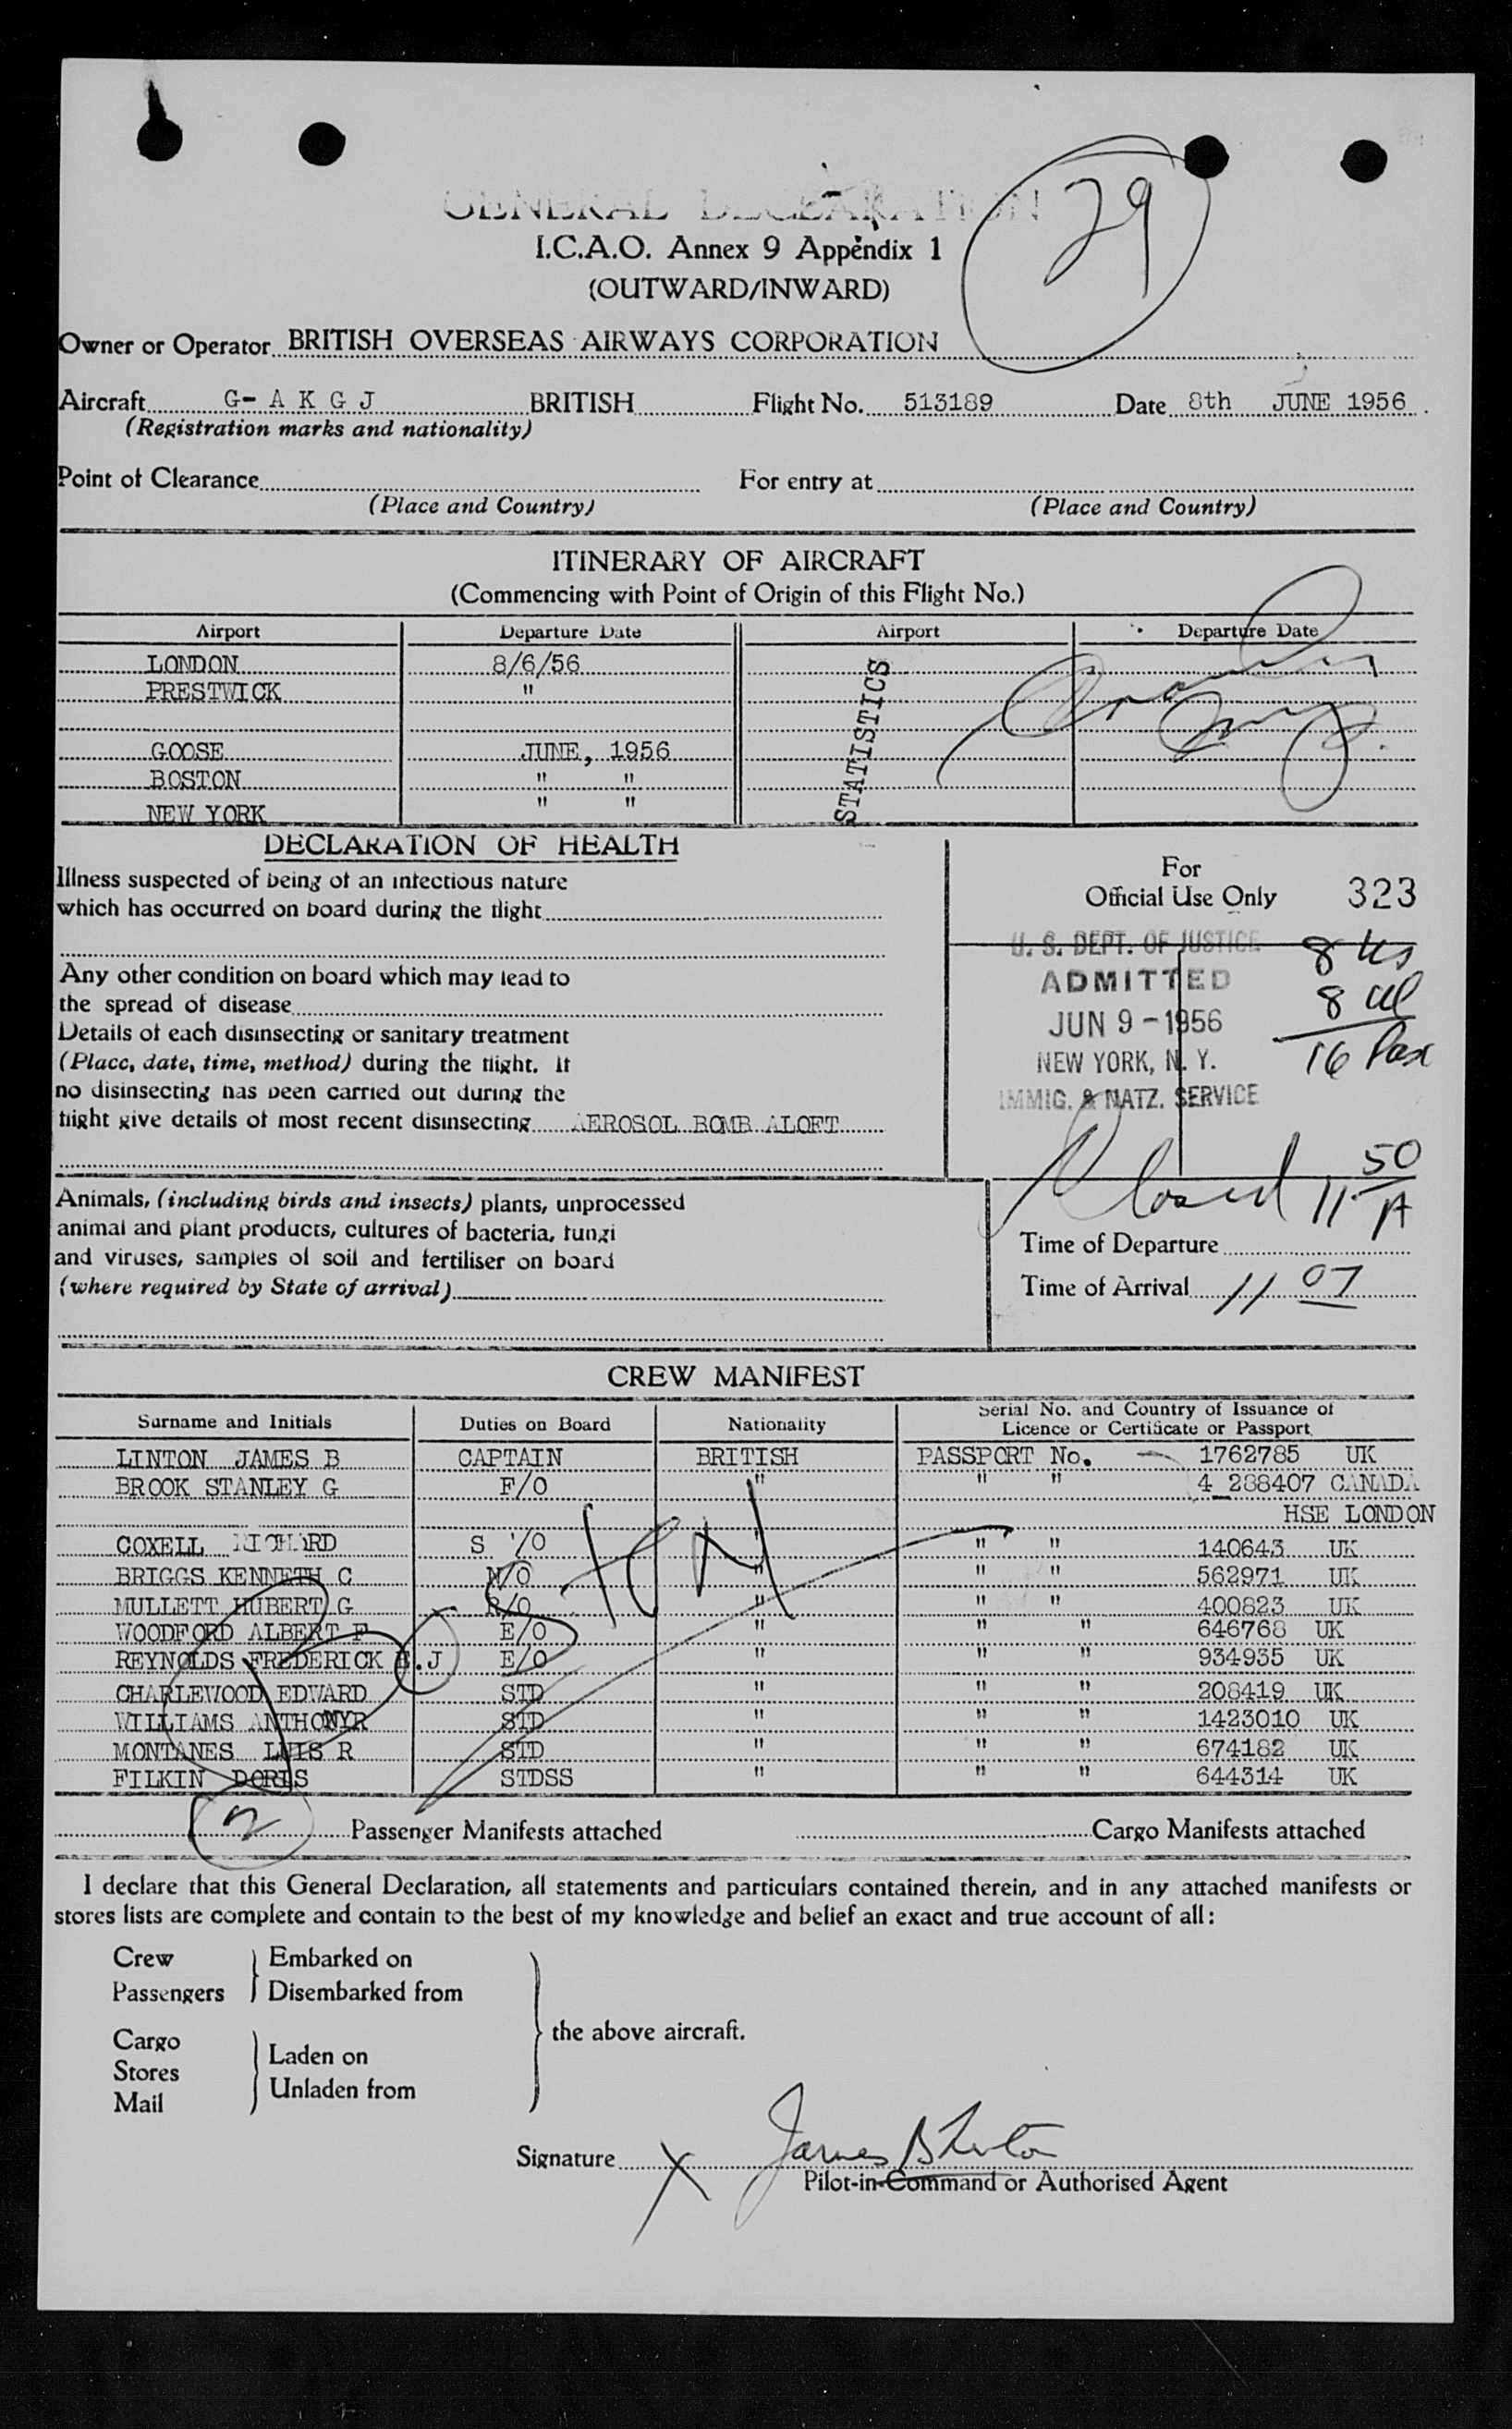 GENERAL DECLARATION
29
I.C.A.O. Annex 9 Appendix 1
(OUTWARD/INWARD)
Owner or Operator BRITISH OVERSEAS AIRWAYS CORPORATION
Aircraft G- A K G J BRITISH Flight No. 513189 Date 8th JUNE 1956
(Registration marks and nationality)
Point of Clearance For entry at
(Place and Country) (Place and Country)
ITINERARY OF AIRCRAFT
(Commencing with Point of Origin of this Flight No.)
Airport Departure Date Airport Departure Date
LONDON 8/6/56
PRESTWICK "
GOOSE JUNE, 1956
BOSTON " "
NEW YORK " "
STATISTICS
DECLARATION OF HEALTH
Illness suspected of being of an infectious nature
which has occurred on board during the flight
Any other condition on board which may lead to
the spread of disease
Details of each disinsecting or sanitary treatment
(Place, date, time, method) during the flight. If
no disinsecting has been carried out during the
flight give details of most recent disinsecting AEROSOL BOMB ALOFT
For
Official Use Only 323
U. S. DEPT. OF JUSTICE
ADMITTED
JUN 9 - 1956
NEW YORK, N. Y.
IMMIG. & NATZ. SERVICE
8 us
8 al
16 Pax
Closed 11 50 A
Animals, (including birds and insects) plants, unprocessed
animal and plant products, cultures of bacteria, fungi
and viruses, samples of soil and fertiliser on board
(where required by State of arrival)
Time of Departure
Time of Arrival 11 07
CREW MANIFEST
Surname and Initials Duties on Board Nationality Serial No. and Country of Issuance of Licence or Certificate or Passport
LINTON JAMES B CAPTAIN BRITISH PASSPORT No. 1762785 UK
BROOK STANLEY G F/O " " " 4 288407 CANADA
HSE LONDON
COXELL RICHARD S /O " " " 140643 UK
BRIGGS KENNETH C N/O " " " 562971 UK
MULLETT HUBERT G R/O " " " 400823 UK
WOODFORD ALBERT F E/O " " " 646768 UK
REYNOLDS FREDERICK .J E/O " " " 934935 UK
CHARLEWOOD EDWARD STD " " " 208419 UK
WILLIAMS ANTHONYR STD " " " 1423010 UK
MONTANES LUIS R STD " " " 674182 UK
FILKIN DORIS STDSS " " " 644314 UK
2 Passenger Manifests attached Cargo Manifests attached
I declare that this General Declaration, all statements and particulars contained therein, and in any attached manifests or
stores lists are complete and contain to the best of my knowledge and belief an exact and true account of all:
Crew Embarked on
Passengers Disembarked from
the above aircraft.
Cargo
Stores Laden on
Mail Unladen from
Signature X James B Linton
Pilot-in-Command or Authorised Agent